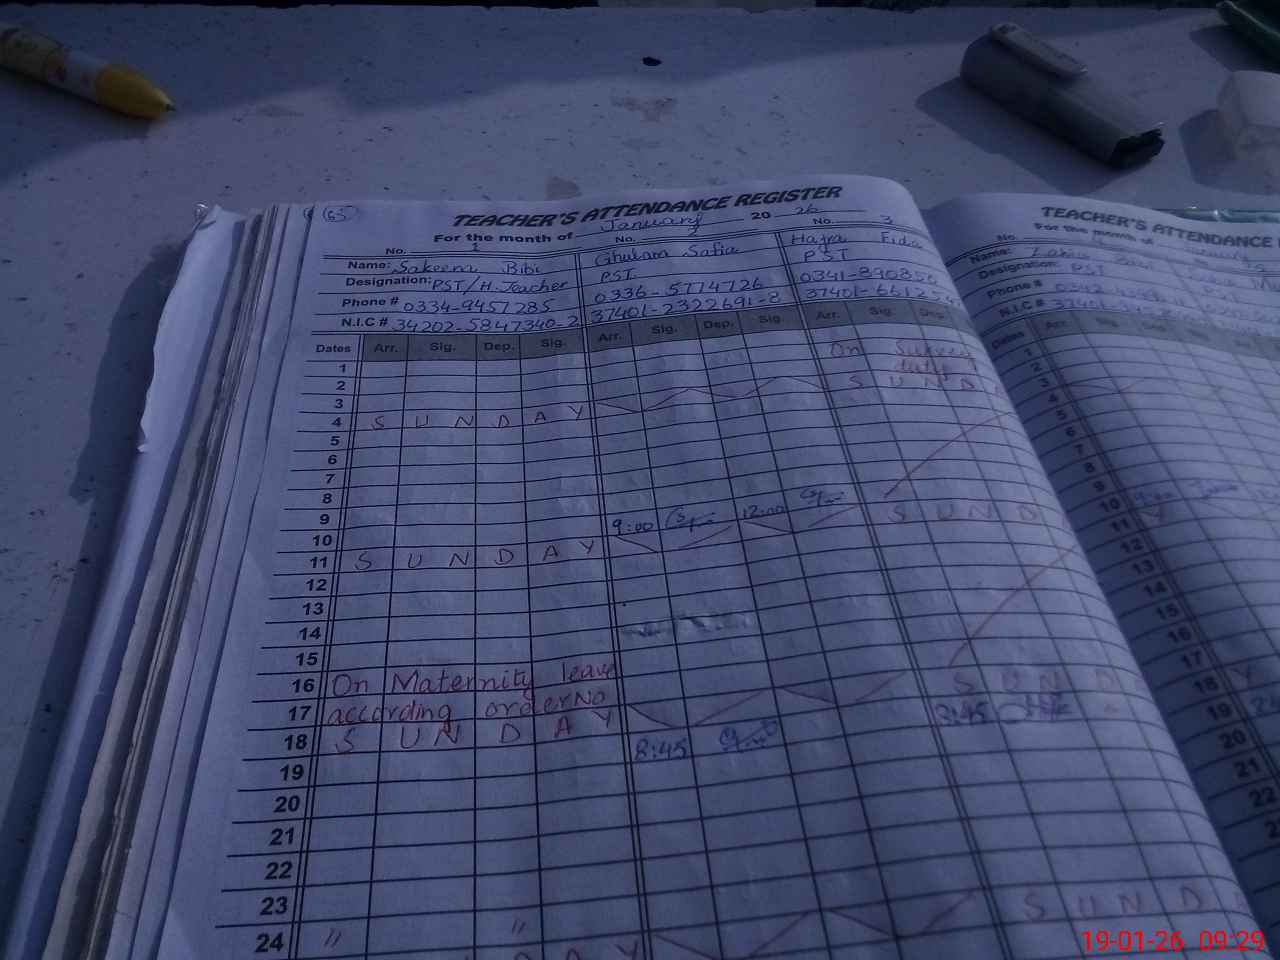 65
TEACHER'S ATTENDANCE REGISTER
For the month of January 20 26
No. 1 No. 2 No. 3
Name: Sakeena Bibi Ghulam Safia Hajra Fida
Designation: PST/H.Teacher PST PST
Phone # 0334-9457285 0336-5774726 0341-890856
N.I.C # 34202-5847340-2 37401-2322691-8 37401-6612
Dates Arr. Sig. Dep. Sig. Arr. Sig. Dep. Sig Arr. Sig. Dep.
1 On Survey
2 duty
3 S U N D
4 S U N D A Y
5
6
7
8
9
10 9:00 12:00 S U N D
11 S U N D A Y
12
13
14
15
16 On Maternity leave
17 according order No S U N D
18 S U N D A Y
19 8:45 8:45
20
21
22
23
24 " " S U N D
A Y
TEACHER'S ATTENDANCE
For the month of
No.
Name:
Designation: PST
Phone #
N.I.C # 37401
Dates Arr.
1
2
3
4
5
6
7
8
9
10 9:00
11 Y
12
13
14
15
16
17
18 Y
19
20
21
22
19-01-26 09:29